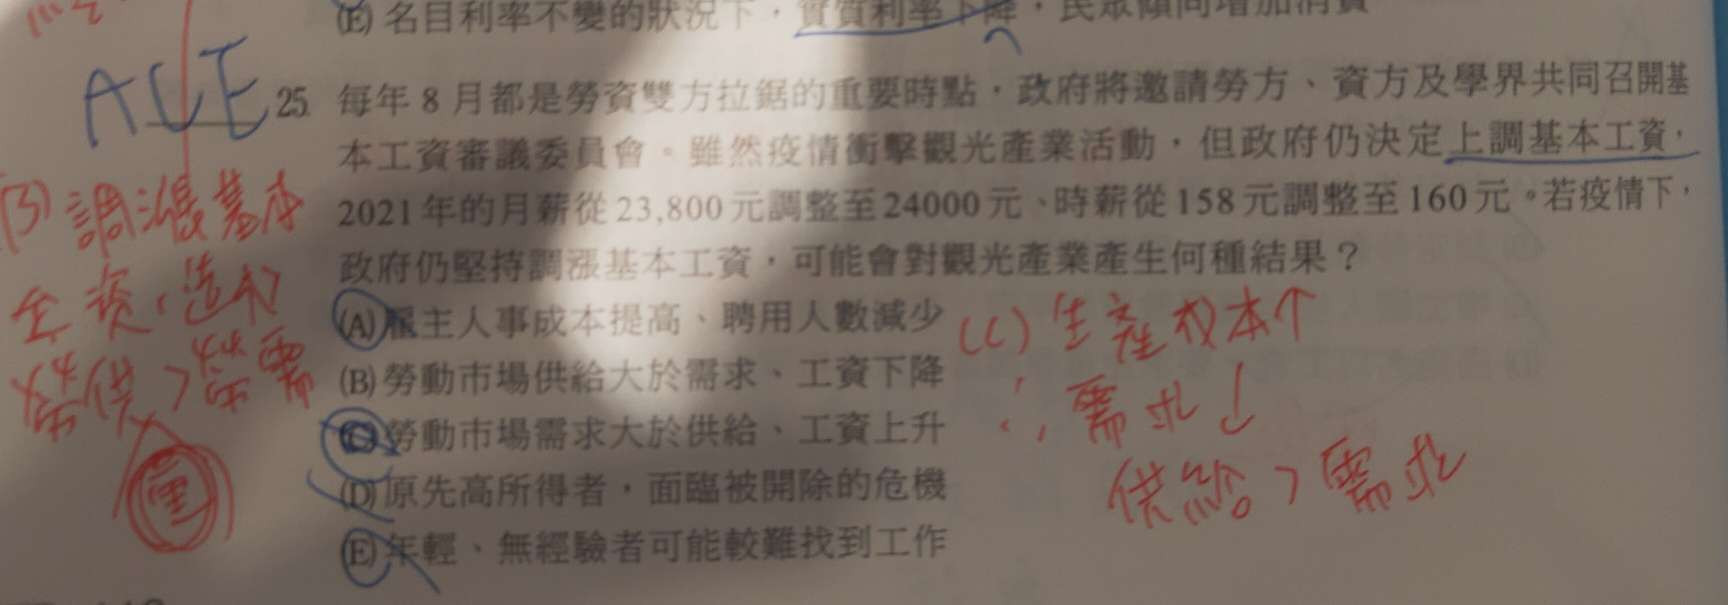 (E) 名目利率不變的狀況下，實質利率下降，民眾傾向增加消費
ACE
25. 每年 8 月都是勞資雙方拉鋸的重要時點，政府將邀請勞方、資方及學界共同召開基
本工資審議委員會。雖然疫情衝擊觀光產業活動，但政府仍決定上調基本工資，
2021 年的月薪從 23,800 元調整至 24000 元、時薪從 158 元調整至 160 元。若疫情下，
政府仍堅持調漲基本工資，可能會對觀光產業產生何種結果？
(A) 雇主人事成本提高、聘用人數減少
(B) 勞動市場供給大於需求、工資下降
(C) 勞動市場需求大於供給、工資上升
(D) 原先高所得者，面臨被開除的危機
(E) 年輕、無經驗者可能較難找到工作
(B) 調漲基本
工資，造成
勞供 > 勞需
(C) 生產成本↑
∴ 需求↓
供給 > 需求